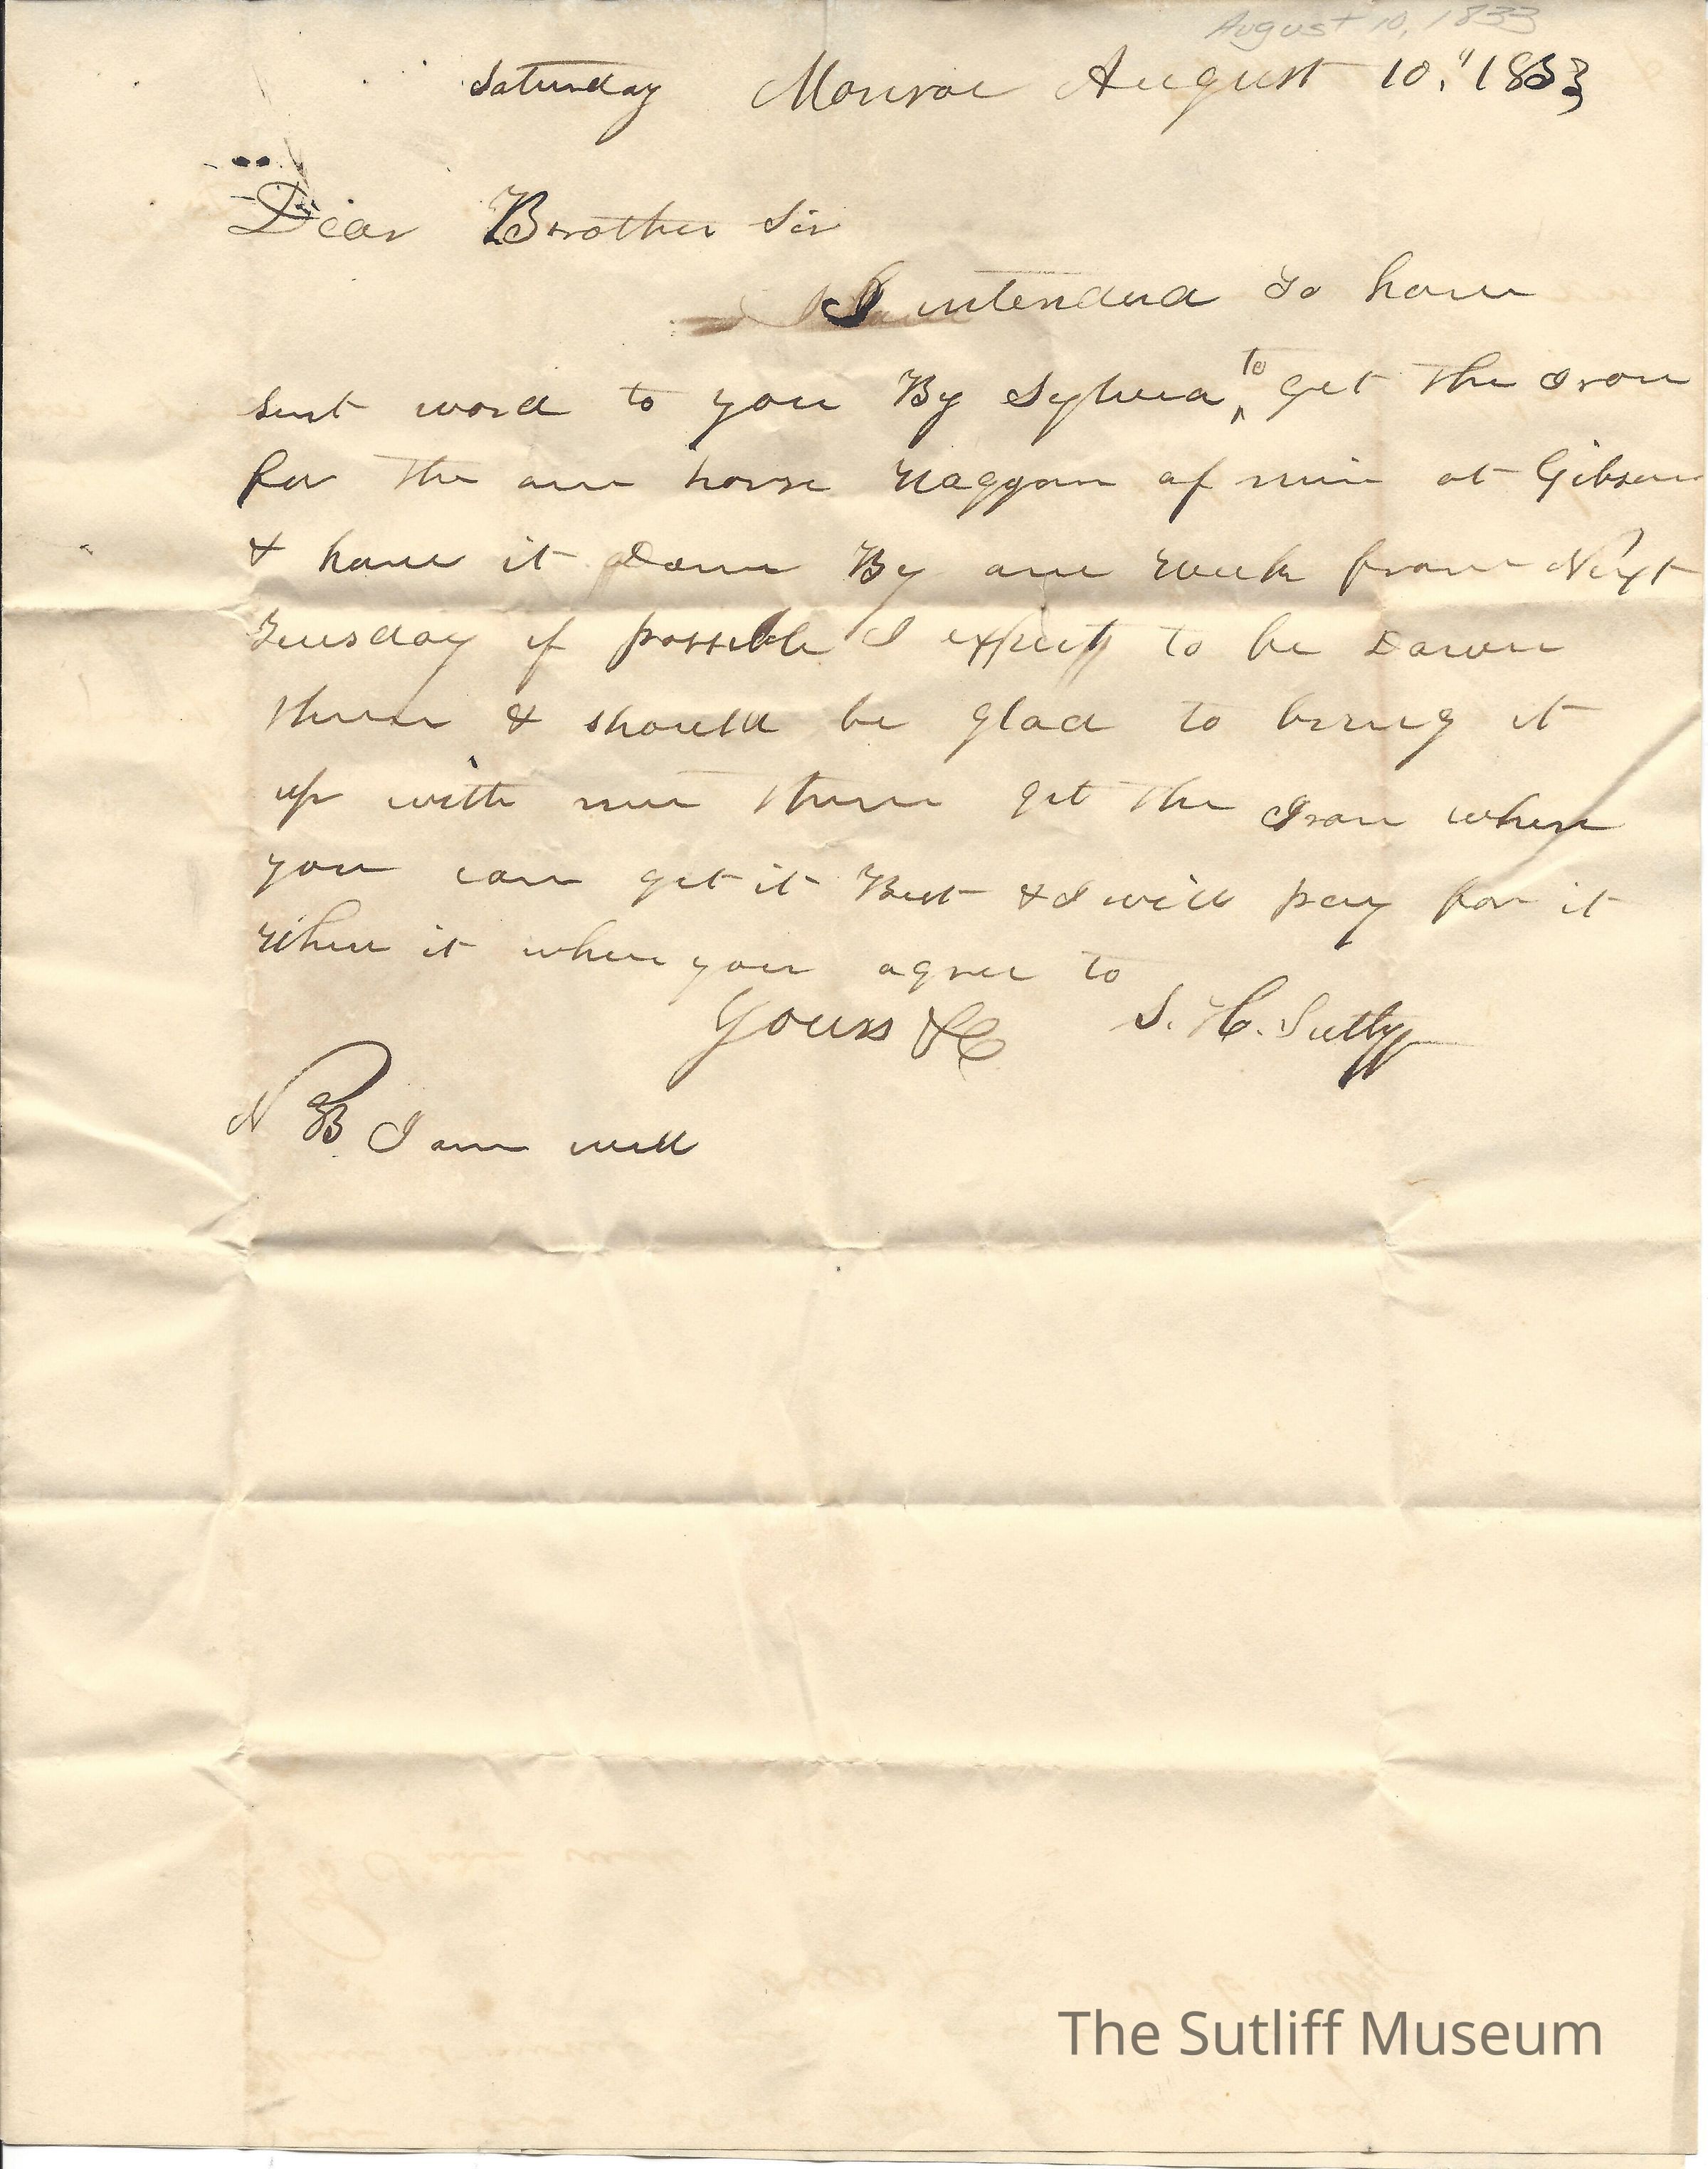 August 10, 1833
Saturday Monroe August 10," 1833
Dear Brother Sir
I intended to have
sent word to you By Sylvia to get the Iron
for the one horse Waggon of mine at Gibsons
& have it Done By one week from Next
Tuesday if possible I expect to be Down
then & should be glad to bring it
up with me then get the Iron where
you can get it Best & I will pay for it
When it when you agree to
Yours &C S. H. Sutliff
N B I am well
The Sutliff Museum